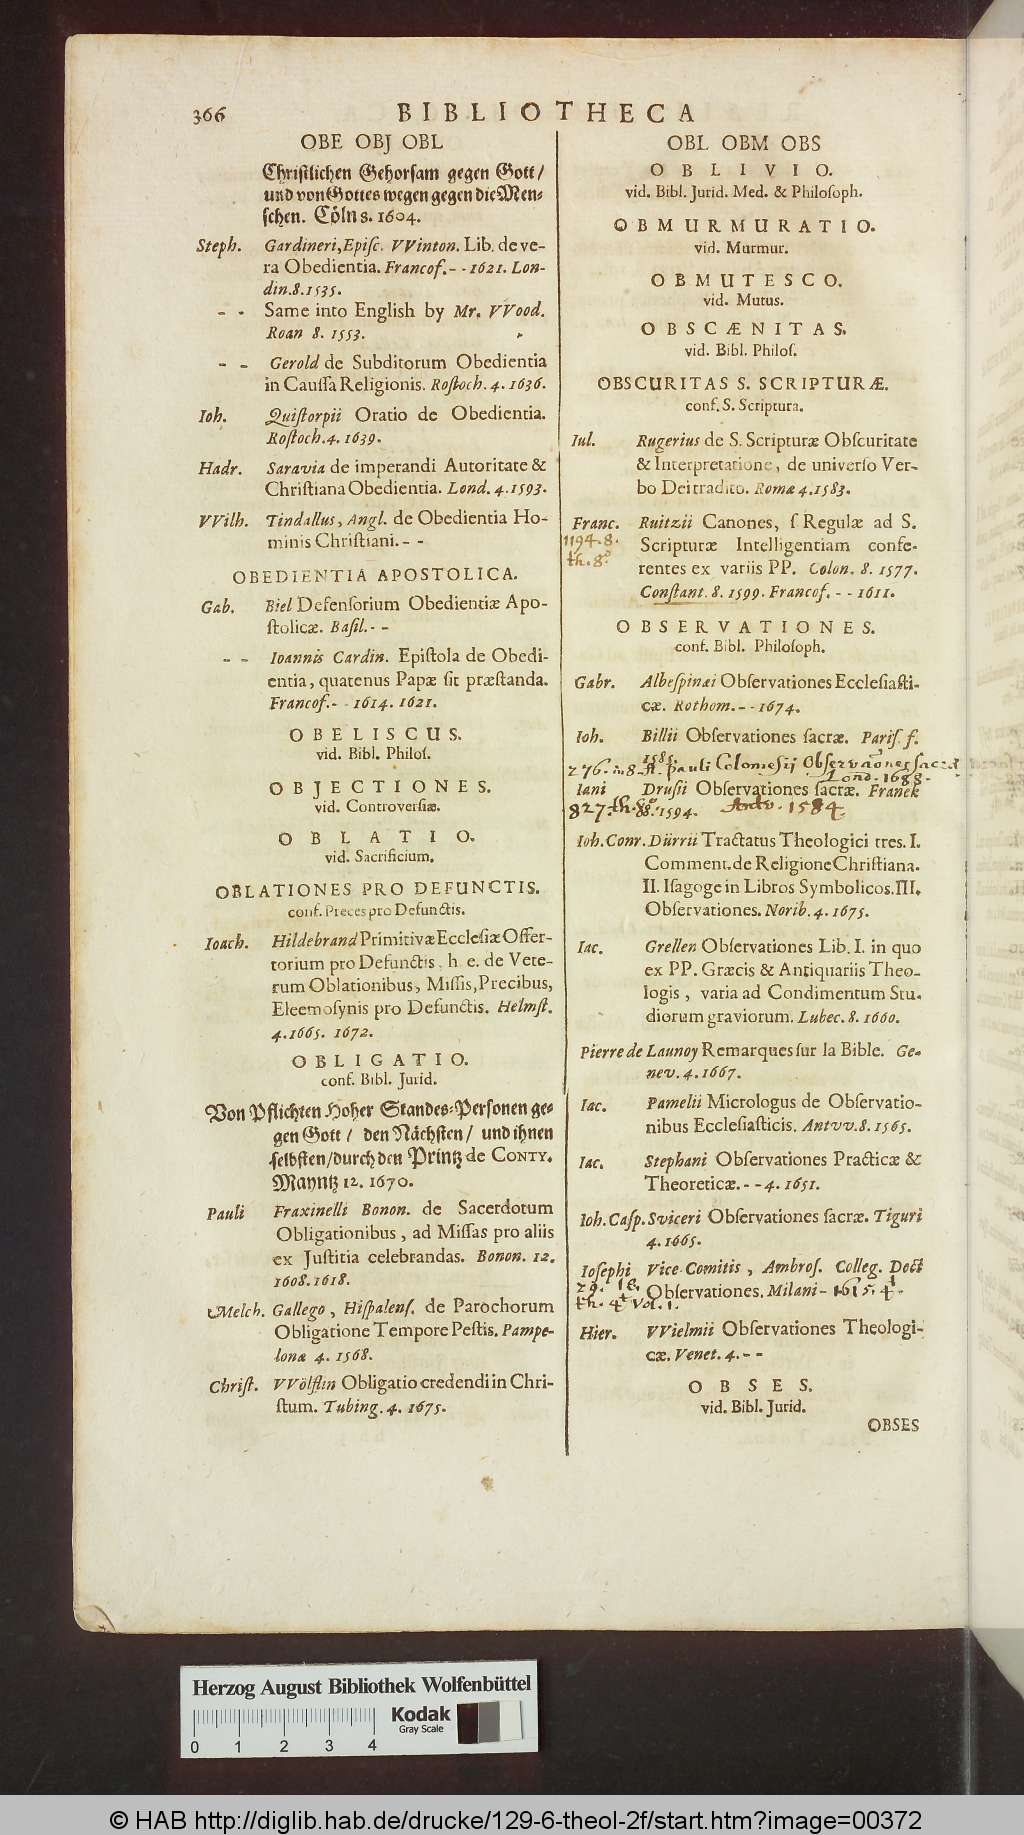 366 BIBLIOTHECA
OBE OBJ OBL
Chriſtlichen Gehorſam gegen Gott/
und von Gottes wegen gegen die Men⸗
ſchen. Cöln 8. 1604.
Steph. Gardineri, Epiſc. VVinton. Lib. de ve-
ra Obedientia. Francof. - - 1621. Lon-
din. 8. 1535.
- - Same into English by Mr. VVood.
Roan 8. 1553.
- - Gerold de Subditorum Obedientia
in Cauſſa Religionis. Roſtoch. 4. 1636.
Ioh. Quiſtorpii Oratio de Obedientia.
Roſtoch. 4. 1639.
Hadr. Saravia de imperandi Autoritate &
Chriſtiana Obedientia. Lond. 4. 1593.
VVilh. Tindallus, Angl. de Obedientia Ho-
minis Chriſtiani. - -
OBEDIENTIA APOSTOLICA.
Gab. Biel Defenſorium Obedientiæ Apo-
ſtolicæ. Baſil. - -
- - Ioannis Cardin. Epiſtola de Obedi-
entia, quatenus Papæ ſit præſtanda.
Francof. - - 1614. 1621.
OBELISCUS.
vid. Bibl. Philoſ.
OBJECTIONES.
vid. Controverſiæ.
OBLATIO.
vid. Sacrificium.
OBLATIONES PRO DEFUNCTIS.
conf. Preces pro Defunctis.
Ioach. Hildebrand Primitivæ Eccleſiæ Offer-
torium pro Defunctis, h. e. de Vete-
rum Oblationibus, Miſſis, Precibus,
Eleemoſynis pro Defunctis. Helmſt.
4. 1665. 1672.
OBLIGATIO.
conf. Bibl. Jurid.
Von Pflichten Hoher Standes⸗Perſonen ge⸗
gen Gott / den Nächſten / und ihnen
ſelbſten / durch den Printz de CONTY.
Mayntz 12. 1670.
Pauli Fraxinelli Bonon. de Sacerdotum
Obligationibus, ad Miſſas pro aliis
ex Juſtitia celebrandas. Bonon. 12.
1608. 1618.
Melch. Gallego, Hiſpalenſ. de Parochorum
Obligatione Tempore Peſtis. Pampe-
lonæ 4. 1568.
Chriſt. VVölflin Obligatio credendi in Chri-
ſtum. Tubing. 4. 1675.
OBL OBM OBS
OBLIVIO.
vid. Bibl. Jurid. Med. & Philoſoph.
OBMURMURATIO.
vid. Murmur.
OBMUTESCO.
vid. Mutus.
OBSCÆNITAS.
vid. Bibl. Philoſ.
OBSCURITAS S. SCRIPTURÆ.
conf. S. Scriptura.
Iul. Rugerius de S. Scripturæ Obſcuritate
& Interpretatione, de univerſo Ver-
bo Dei tradito. Romæ 4. 1583.
Franc. Ruitzii Canones, ſ Regulæ ad S.
1194. 8. Scripturæ Intelligentiam confe-
th. 8o rentes ex variis PP. Colon. 8. 1577.
Conſtant. 8. 1599. Francof. - - 1611.
OBSERVATIONES.
conf. Bibl. Philoſoph.
Gabr. Albeſpinæi Obſervationes Eccleſiaſti-
cæ. Rothom. - - 1674.
Ioh. Billii Obſervationes ſacræ. Pariſ. f.
1585.
276. in 8. Pauli Colomesii Observationes sacræ
Lond. 1688.
Iani Druſii Obſervationes ſacræ. Franek
827. th. 8o 8. 1594. Antv. 1584.
Ioh. Conr. Dürrii Tractatus Theologici tres. I.
Comment. de Religione Chriſtiana.
II. Iſagoge in Libros Symbolicos. III.
Obſervationes. Norib. 4. 1675.
Iac. Grellen Obſervationes Lib. I. in quo
ex PP. Græcis & Antiquariis Theo-
logis, varia ad Condimentum Stu-
diorum graviorum. Lubec. 8. 1660.
Pierre de Launoy Remarques ſur la Bible. Ge-
nev. 4. 1667.
Iac. Pamelii Micrologus de Obſervatio-
nibus Eccleſiaſticis. Antvv. 8. 1565.
Iac. Stephani Obſervationes Practicæ &
Theoreticæ. - - 4. 1651.
Ioh. Caſp. Sviceri Obſervationes ſacræ. Tiguri
4. 1665.
Ioſephi Vice-Comitis, Ambroſ. Colleg. Doct
29. 18. Obſervationes. Milani - 1615. 4t.
th. 4t Vol. 1.
Hier. VVielmii Obſervationes Theologi-
cæ. Venet. 4. - -
OBSES.
vid. Bibl. Jurid.
OBSES
Herzog August Bibliothek Wolfenbüttel
Kodak
Gray Scale
0 1 2 3 4
© HAB http://diglib.hab.de/drucke/129-6-theol-2f/start.htm?image=00372